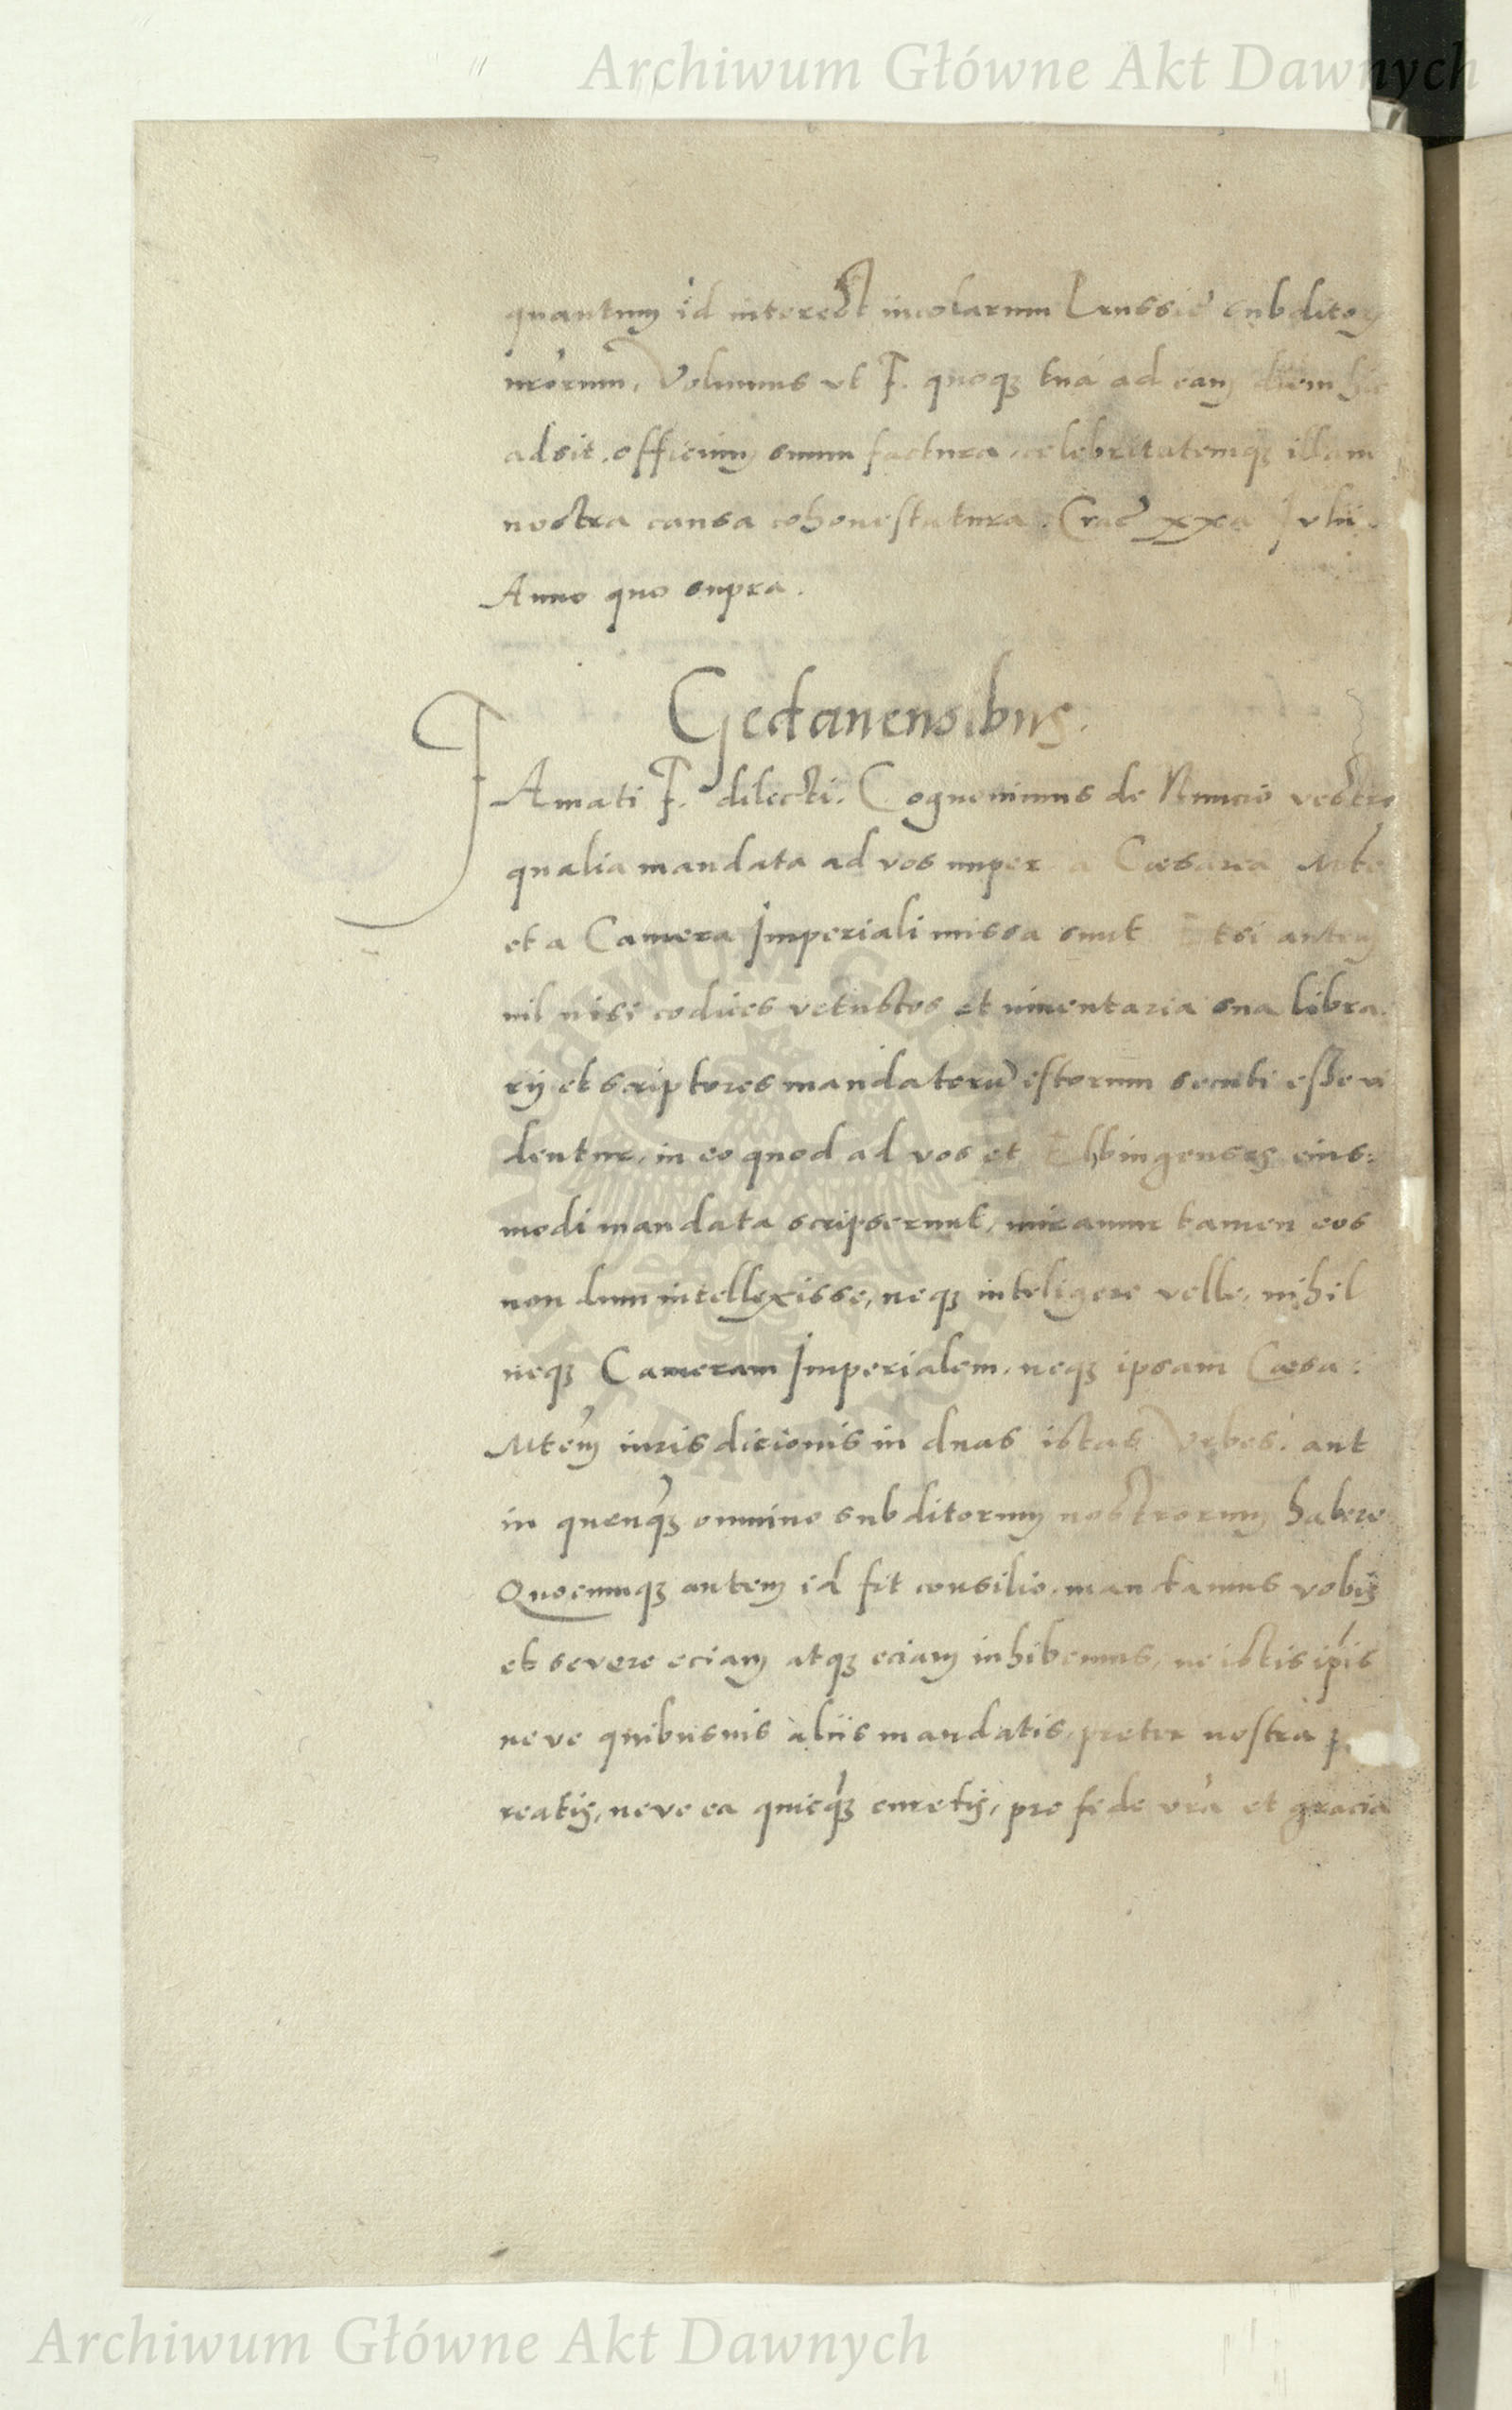 Archiwum Główne Akt Dawnych
quantum id interest incolarum Prussie subditor
nr̃orum, Volumus vt F. quoqꝫ tua ad eam diem hic
adsit, officium suum factura, celebritatemqꝫ illam
nostra causa cohonestatura. Crac̃ xxa Julii.
Anno quo supra.
Gedanensibus.
Amati F. dilecti. Cognovimus de Nuncio vestro
qualia mandata ad vos nuper a Cæsarea Mte
et a Camera Imperiali missa sunt Etsi autem
nil nisi codices vetustos et inventaria sua libra
rij et scriptores mandatorũ istorum secuti esse vi
dentur, in eo quod ad vos et Elbingenses eius:
modi mandata scripserunt, miramur tamen eos
non dum intellexisse, neqꝫ inteligere velle, nihil
neqꝫ Cameram Imperialem, neqꝫ ipsam Cæsa:
Mtem̃ iurisdicionis in duas istas Vrbes, aut
in quenq̃ꝫ omnino subditorum nostrorum habere.
Quocumqꝫ autem id fit consilio, mandamus vobis
et severe eciam atqꝫ eciam inhibemus, ne istis ip̃is
neve quibusuis aliis mandatis, preter nostra p
reatis, neve ea quicq̃ꝫ curetis, pro fide vr̃a et gracia
ARCHIWUM GŁÓWNE AKT DAWNYCH
Archiwum Główne Akt Dawnych